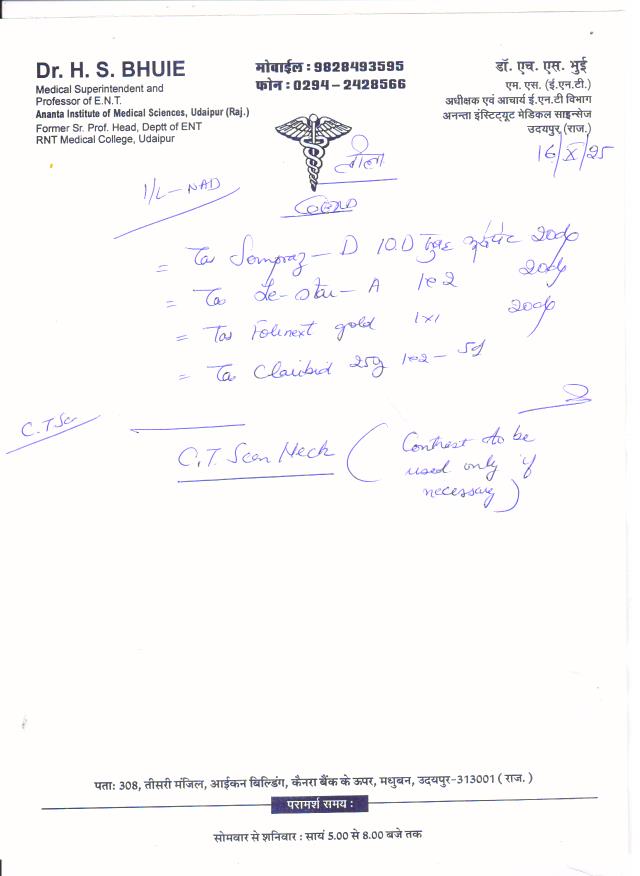 Dr. H. S. BHUIE
Medical Superintendent and
Professor of E.N.T.
Ananta Institute of Medical Sciences, Udaipur (Raj.)
Former Sr. Prof. Head, Deptt of ENT
RNT Medical College, Udaipur
मोबाईल : 9828493595
फोन : 0294 - 2428566
डॉ. एच. एस. भुई
एम. एस. (ई.एन.टी.)
अधीक्षक एवं आचार्य ई.एन.टी विभाग
अनन्ता इंस्टिट्यूट मेडिकल साइन्सेज
उदयपुर (राज.)
16/X/25
I/L - NAD
= Tab Sompraz - D 10.D
= Tab A 1e2
= Tab Folinext gold 1x1
= Tab Claribid 1e2 - 5d
C.T Scan
C.T. Scan Neck (Contrest to be
used only if
necessary)
पता: 308, तीसरी मंजिल, आईकन बिल्डिंग, कैनरा बैंक के ऊपर, मधुबन, उदयपुर-313001 ( राज. )
परामर्श समय :
सोमवार से शनिवार : सायं 5.00 से 8.00 बजे तक